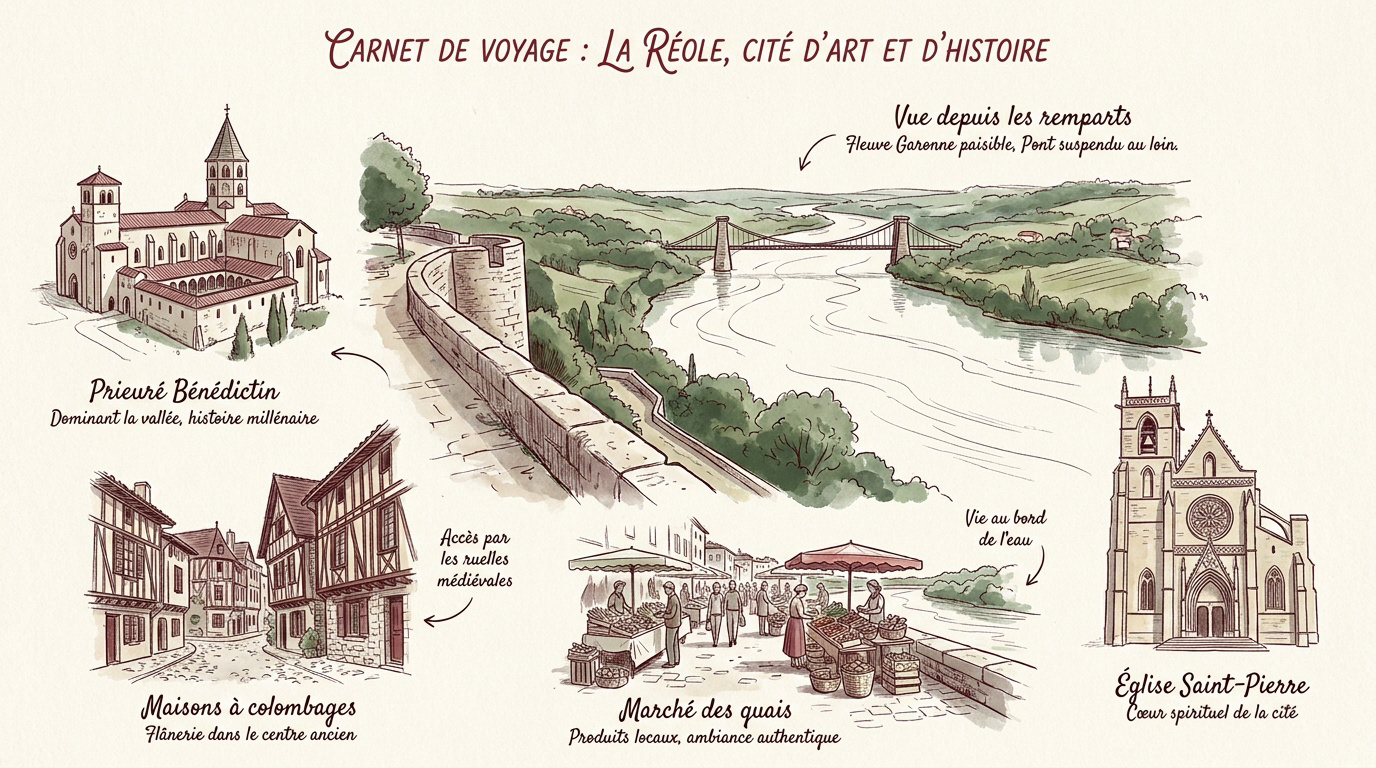 Carnet de voyage : La Réole, cité d'art et d'histoire
Vue depuis les remparts
Fleuve Garonne paisible, Pont suspendu au loin.
Prieuré Bénédictin
Dominant la vallée, histoire millénaire
Accès par
les ruelles
médiévales
Vie au bord
de l'eau
Maisons à colombages
Flânerie dans le centre ancien
Marché des quais
Produits locaux, ambiance authentique
Église Saint-Pierre
Cœur spirituel de la cité